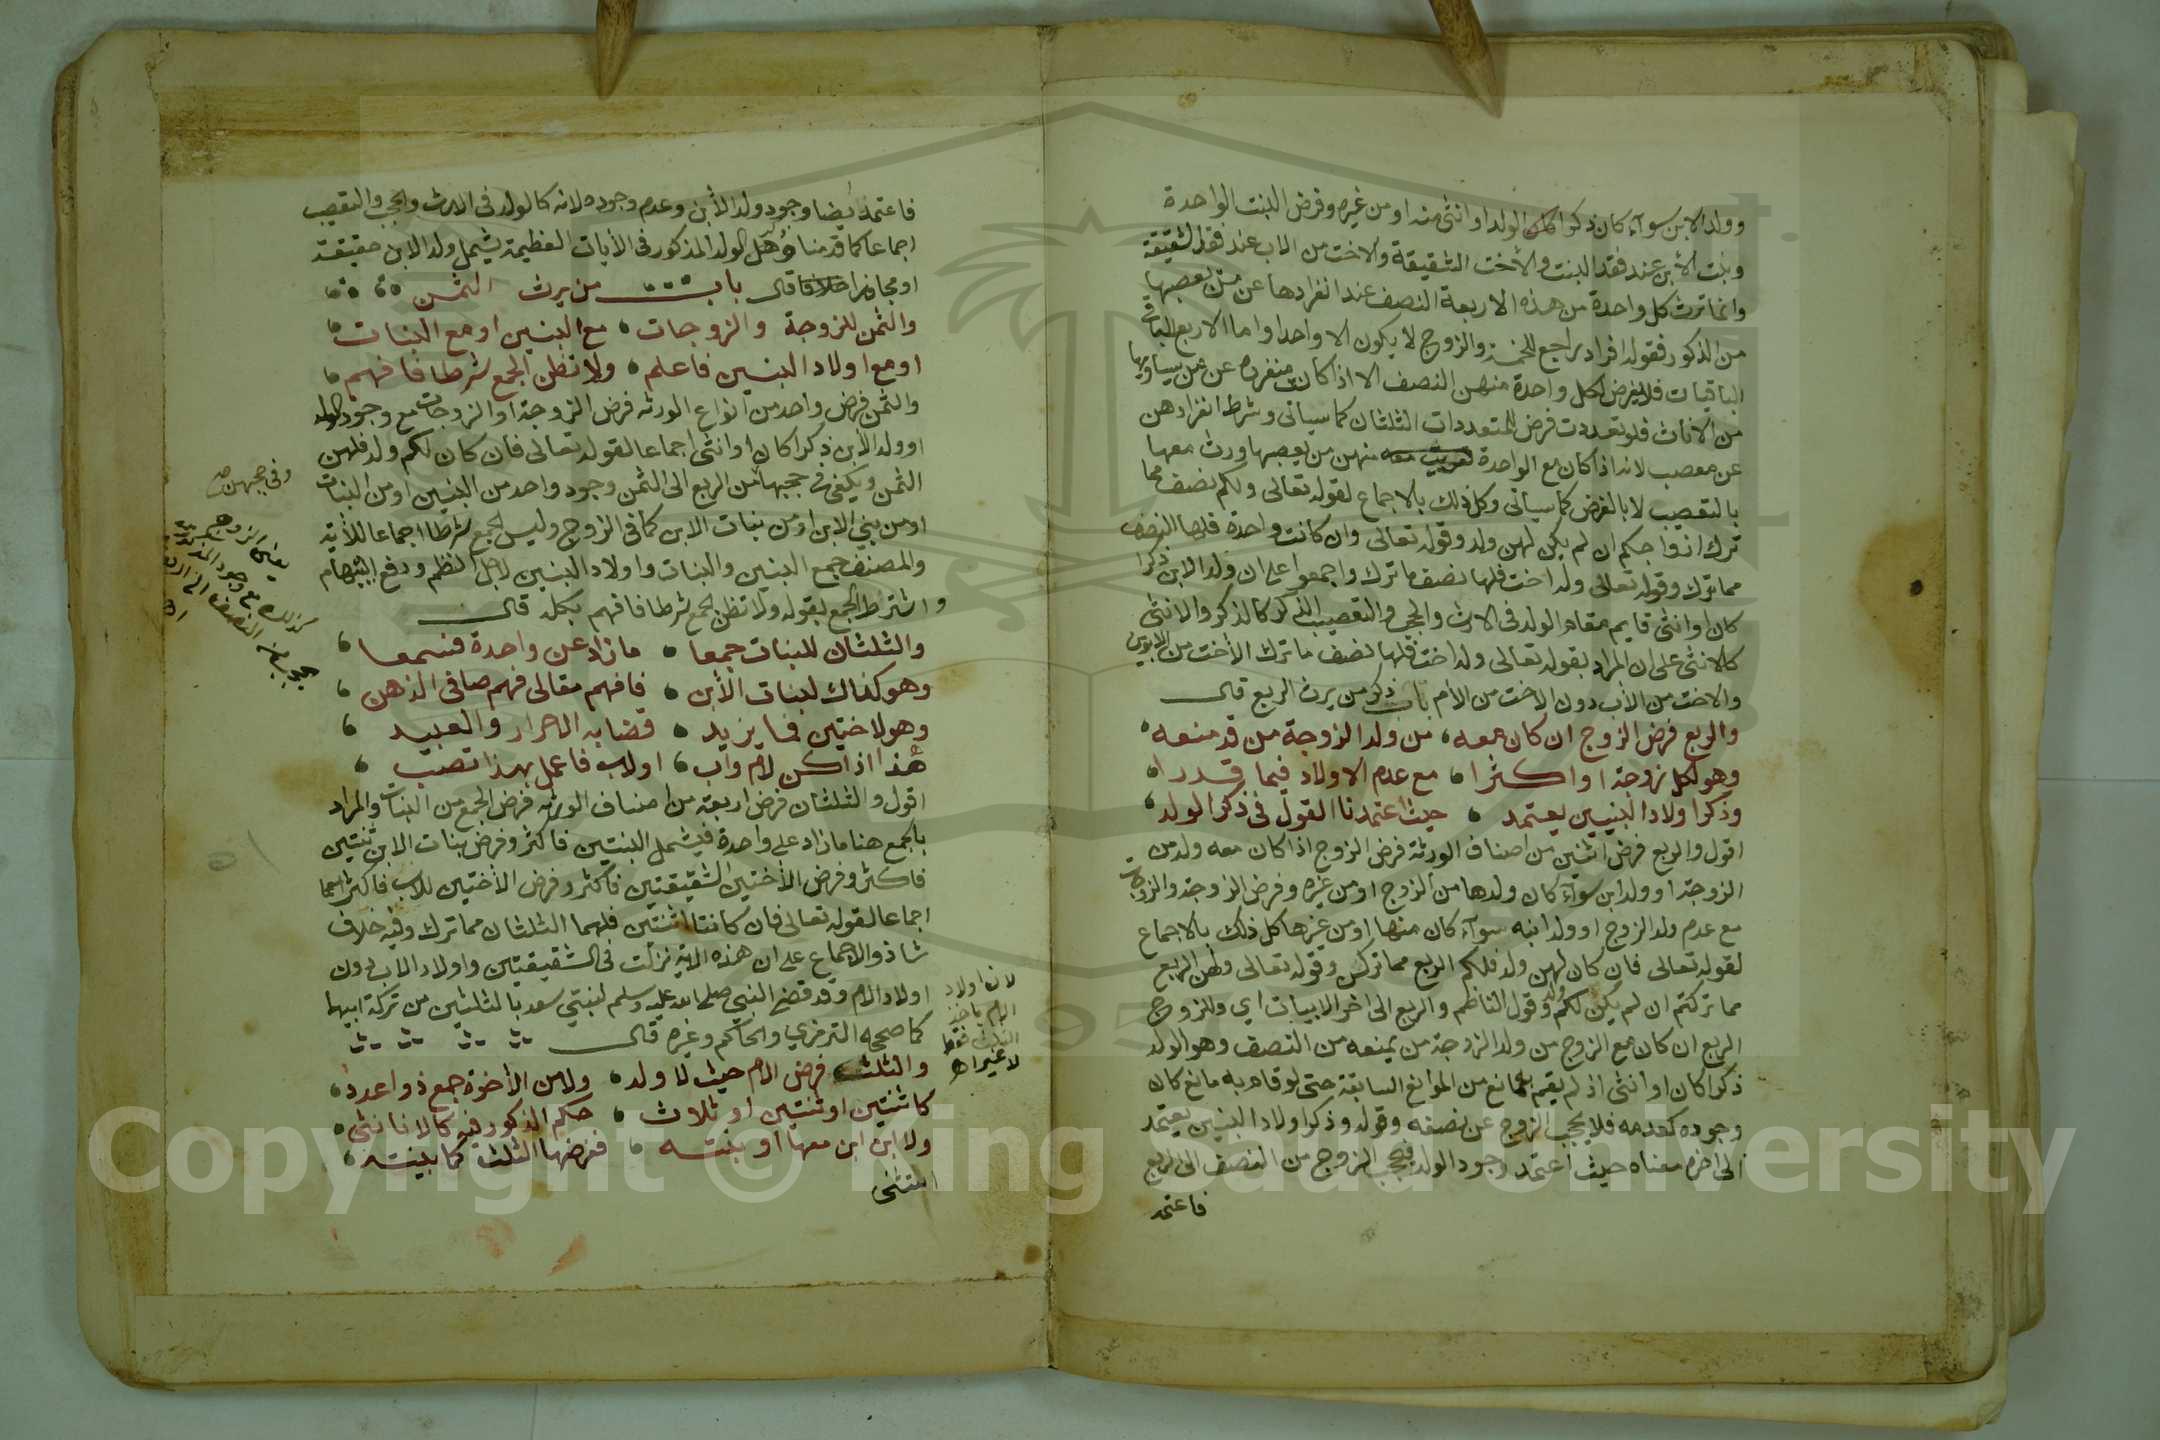 وولد الابن سوآء كان ذكرا كان الولد او انثى منه او من غيره وفرض البنت الواحدة
وبنت الابن عند فقد البنت والأخت الشقيقة والاخت من الاب عند فقد الشقيقة
وانما ترث كل واحدة من هذه الاربعة النصف عند انفرادها عن من يعصبها
من الذكور فقوله افراد راجع للخمسة والزوج لا يكون الا واحدا واما الاربع البنات
الباقيات فلا يفرض لكل واحدة منهن النصف الا اذا كانت منفردة عن من يساويها
من الاناث فلو تعددت فرض للمتعددات الثلثان كما سياتى وشرط انفرادهن
عن معصب لانه اذا كان مع الواحدة منهن من يعصبها ورث معها
بالتعصيب لا بالفرض كما سياتى وكل ذلك بالاجماع لقوله تعالى ولكم نصف مما
ترك ازواجكم ان لم يكن لهن ولد وقوله تعالى وان كانت واحدة فلها النصف
مما ترك وقوله تعالى وله اخت فلها نصف ما ترك واجمعوا على ان ولد الابن ذكرا
كان او انثى قايم مقام الولد فى الارث والحجب والتعصيب الذكر كالذكر والانثى
كالانثى على ان المراد بقوله تعالى وله اخت فلها نصف ما ترك الأخت من الابوين
والاخت من الأب دون الاخت من الأم باب ذكر من يرث الربع قال
والربع فرض الزوج ان كان معه من ولد الزوجة من قد منعه
وهو لكل زوجة او اكثرا مع عدم الاولاد فيما قدرا
وذكر اولاد البنين يعتمد حيث اعتمدنا القول فى ذكر الولد
اقول والربع فرض اثنين من اصناف الورثة فرض الزوج اذا كان معه ولد من
الزوجة او ولد ابن سوآء كان ولدها من الزوج او من غيره وفرض الزوجة والزوجات
مع عدم ولد الزوج او ولد ابنه سوآء كان منها او من غيرها كل ذلك بالاجماع
لقوله تعالى فان كان لهن ولد فلكم الربع مما تركن وقوله تعالى ولهن الربع
مما تركتم ان لم يكن لكم ولد وقول الناظم والربع الى اخر الابيات اي وللزوج
الربع ان كان مع الزوج من ولد الزوجة من يمنعه من النصف وهو الولد
ذكرا كان او انثى اذ لم يقم به مانع من الموانع السابقة حتى لو قام به مانع كان
وجوده كعدمه فلا يحجب الزوج عن نصفه وقوله وذكر اولاد البنين يعتمد
الى اخره معناه حيث اعتمد وجود الولد فيحجب الزوج من النصف الى الربع
فاعتمد
فاعتمد ايضا وجود ولد الأبن وعدم وجوده لانه كالولد فى الارث والحجب والتعصيب
اجماعا كما قدمنا وهل الولد المذكور فى الأيات العظيمة يشمل ولد الابن حقيقة
او مجازا خلاف قال باب من يرث الثمن
والثمن للزوجة والزوجات مع البنين او مع البنات
او مع اولاد البنين فاعلم ولا تظن الجمع شرطا فافهم
والثمن فرض واحد من انواع الورثه فرض الزوجة او الزوجات مع وجود الولد
او ولد الأبن ذكرا كان او انثى اجماعا لقوله تعالى فان كان لكم ولد فلهن
الثمن ويكفى فى حجبها من الربع الى الثمن وجود واحد من البنين او من البنات
او من بني الابن او من بنات الابن كما فى الزوج وليس الجمع شرطا اجماعا للأية
والمصنف جمع البنين والبنات واولاد البنين لاجل النظم ودفع ايهام
واشتراط الجمع بقوله ولا تظن الجمع شرطا فافهم بكله قال
والثلثان للبنات جمعا ما زاد عن واحدة فسمعا
وهو كذاك لبنات الأبن فافهم مقالى فهم صافى الذهن
وهو لاختين فما يزيد قضا به الاحرار والعبيد
هذا اذا كن لام واب او لاب فاعمل بهذا تصب
اقول والثلثان فرض اربعة من اصناف الورثه فرض الجمع من البنات والمراد
بالجمع هنا ما زاد على واحدة فيشمل البنتين فاكثر وفرض بنات الابن ثنتين
فاكثر وفرض الأختين الشقيقتين فاكثر وفرض الأختين للاب فاكثر
اجماعا لقوله تعالى فان كانتا اثنتين فلهما الثلثان مما ترك وفيه خلاف
شاذ والاجماع على ان هذه الاية نزلت فى الشقيقتين واولاد الاب دون
اولاد الام وقد قضى النبي صلى الله عليه وسلم لبنتي سعد بالثلثين من تركة ابيها
كما صححه الترمزي والحاكم وغيره قال
والثلث فرض الام حيث لا ولد ولا من الأخوة جمع ذو اعدد
كاثنتين او ثنتين او ثلاث حكم الذكور فيه كالاناثى
ولا ابن ابن معها او بنته ففرضها الثلث كما بينته
استثنى
وفى حجبهن
يعنى الزوج
لان اولاد
الام
فقط
لا غير اه
Copyright © King Saud University
1957